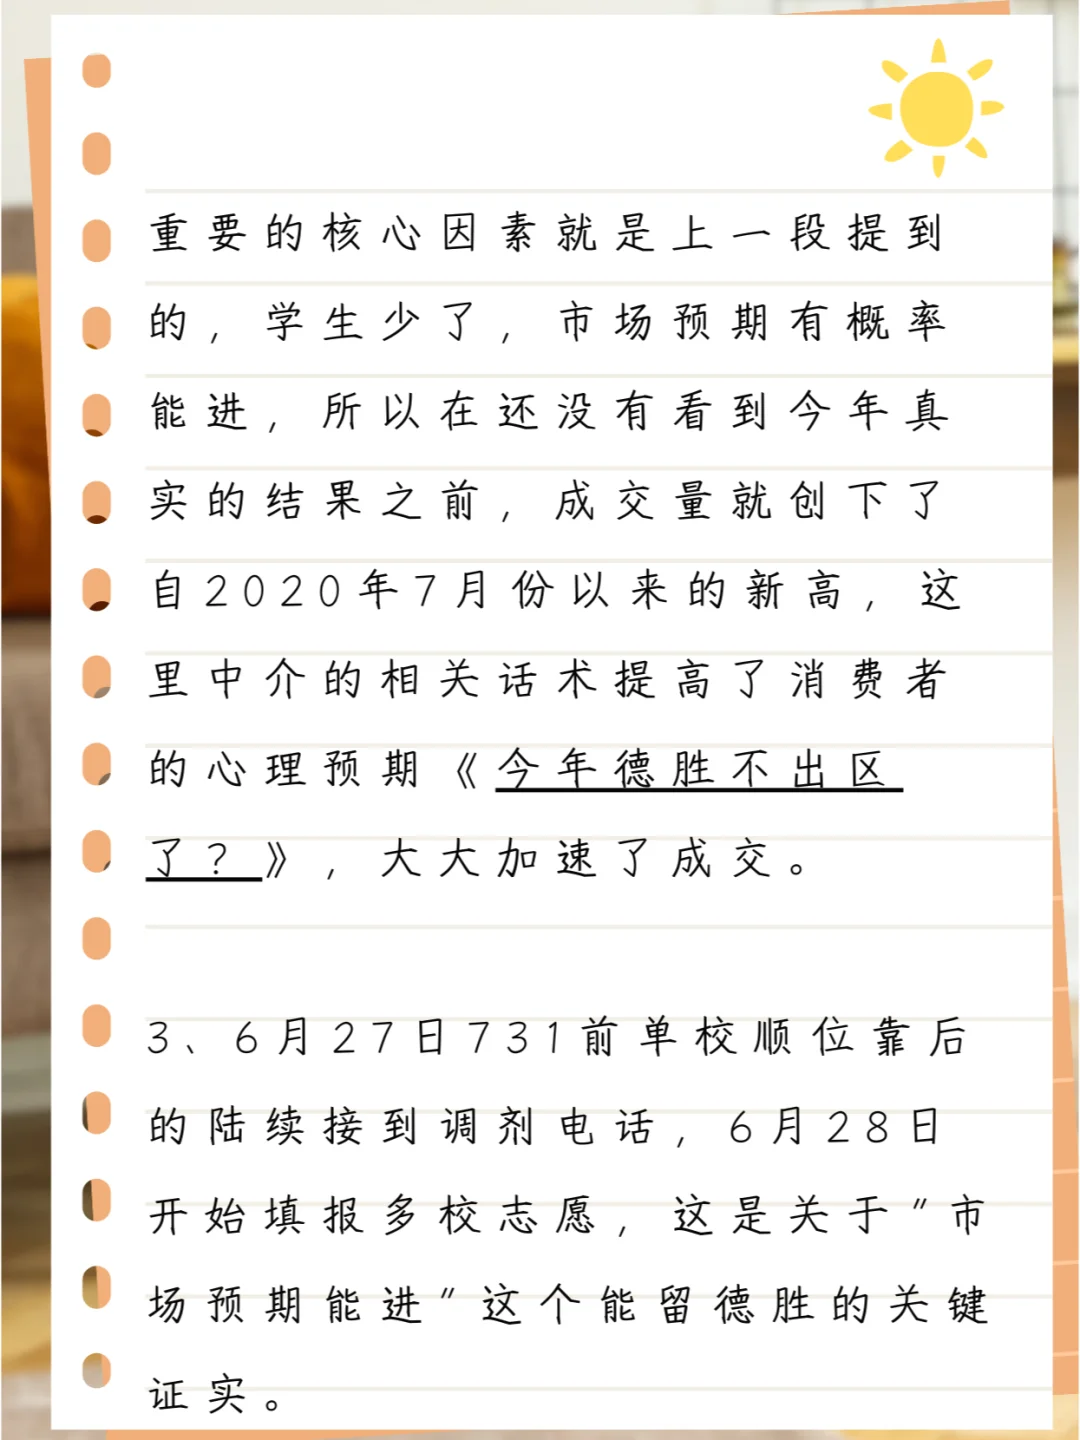 重要的核心因素就是上一段提到
的，学生少了，市场预期有概率
能进，所以在还没有看到今年真
实的结果之前，成交量就创下了
自2020年7月份以来的新高，这
里中介的相关话术提高了消费者
的心理预期《今年德胜不出区
了？》，大大加速了成交。
3、6月27日731前单校顺位靠后
的陆续接到调剂电话，6月28日
开始填报多校志愿，这是关于"市
场预期能进"这个能留德胜的关键
证实。